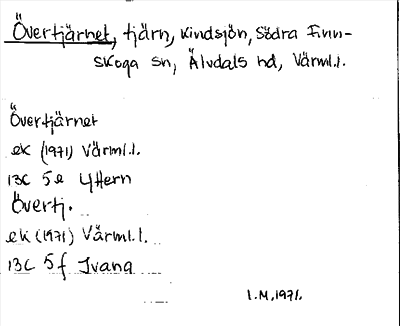 Övertjärnet, tjärn, Kindsjön, Södra Finn-
skoga sn, Älvdals hd, Värml.l.
Övertjärnet
ek (1971) Värml.l.
13C 5e Yttern
Övertj.
ek (1971) Värml.l.
13C 5f Ivana
I.M. 1971.